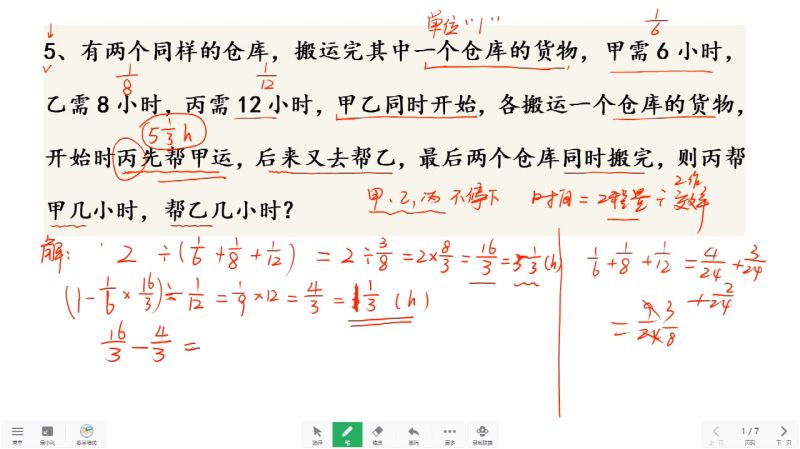 单位"1" 1/6
5、有两个同样的仓库，搬运完其中一个仓库的货物，甲需6小时，
1/8 1/12
乙需8小时，丙需12小时，甲乙同时开始，各搬运一个仓库的货物，
5 1/3 h
开始时丙先帮甲运，后来又去帮乙，最后两个仓库同时搬完，则丙帮
甲几小时，帮乙几小时？
甲、乙、丙 不停下 时间=工程量÷工作效率
解： 2÷(1/6+1/8+1/12)=2÷3/8=2×8/3=16/3=5 1/3(h)
(1-1/6×16/3)÷1/12=1/9×12=4/3=1 1/3(h)
16/3-4/3=
1/6+1/8+1/12=4/24+3/24
+2/24
=9/24 3/8
菜单 最小化 选择 笔 更多 1/7
上页 页码 下页